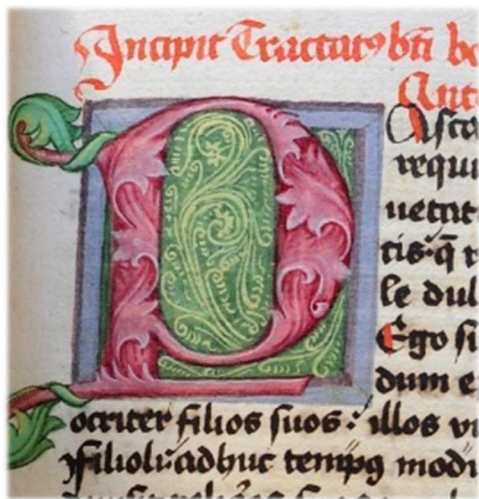 Incipit Tractatꝯ bti be
Ant
P Asto
requi
uetat
tis·q̄ r
le dul
Ego si
dum e
ocriter filios suos : illos vi
filioli: adhuc tempꝯ modi